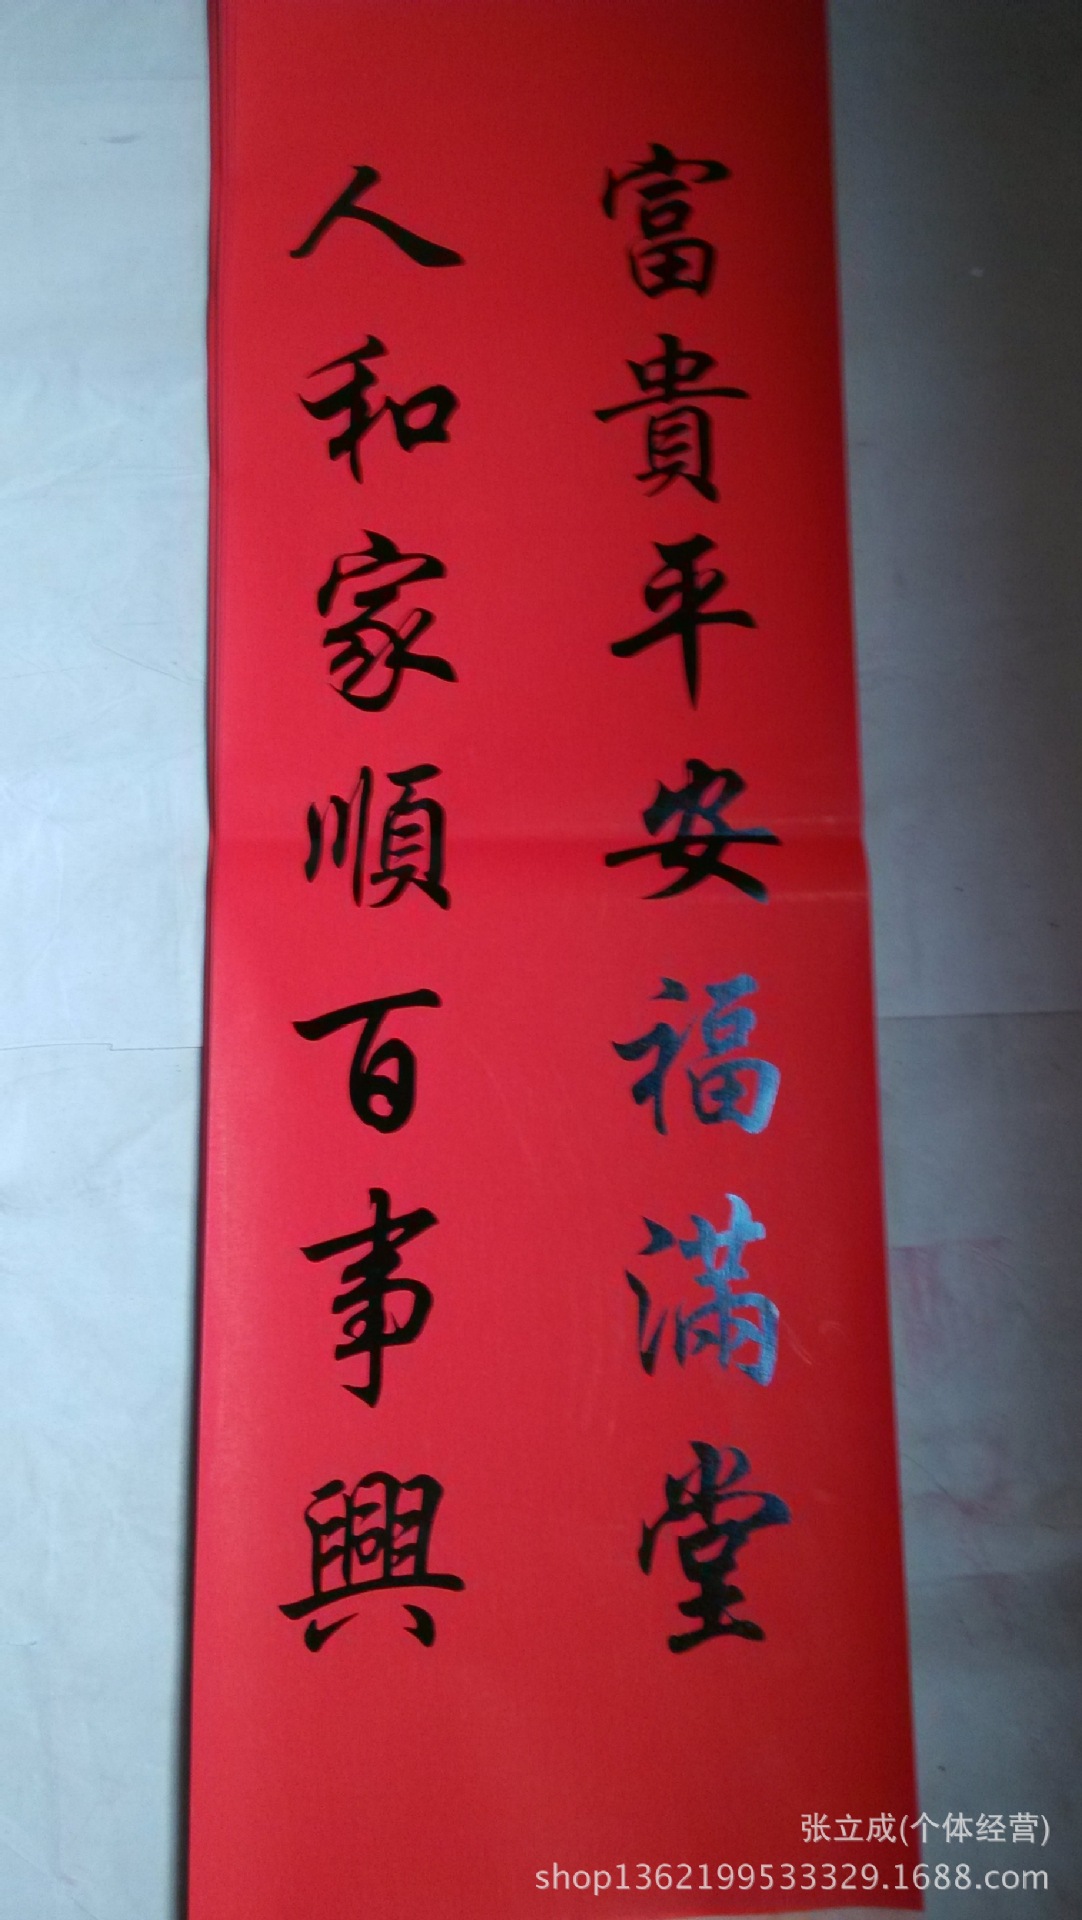 富貴平安福满堂
人和家順百事興
张立成(个体经营)
shop1362199533329.1688.com